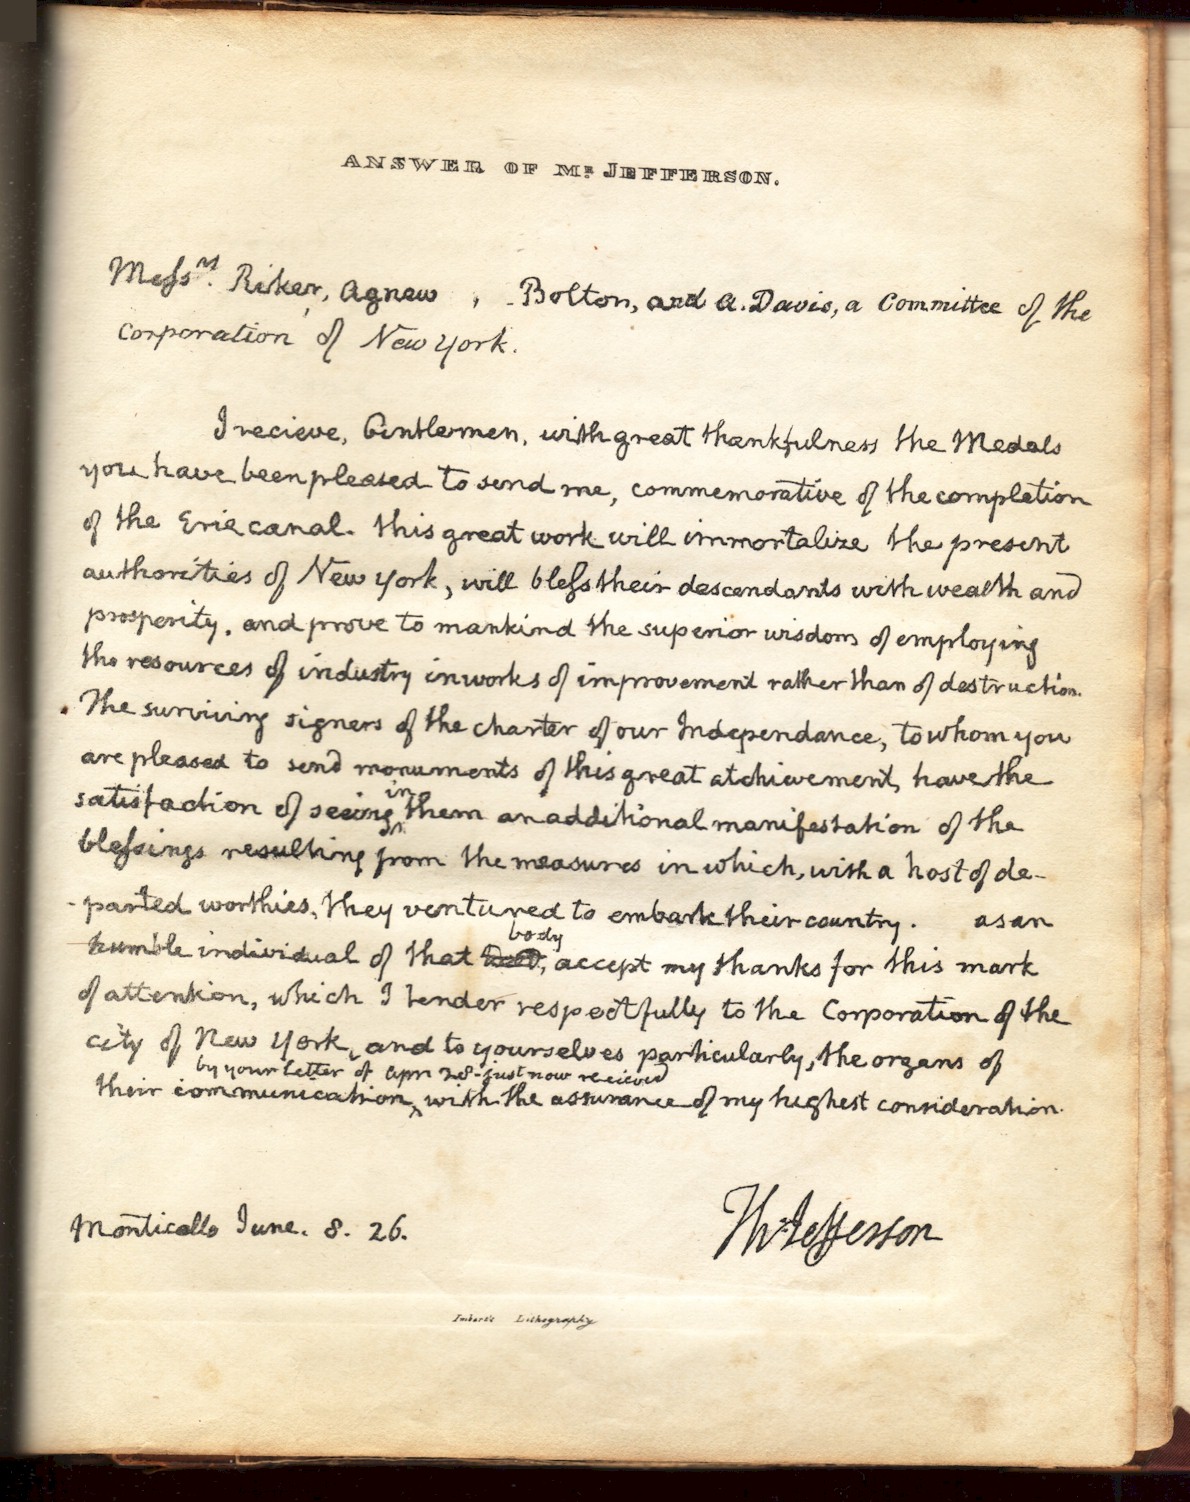 ANSWER OF Mr. JEFFERSON.
Messrs. Riker, Agnew , Bolton, and A. Davis, a Committee of the
Corporation of New York.
I recieve, Gentlemen, with great thankfulness the Medals
you have been pleased to send me, commemorative of the completion
of the Erie canal. this great work will immortalize the present
authorities of New York, will bless their descendants with wealth and
prosperity, and prove to mankind the superior wisdom of employing
the resources of industry in works of improvement rather than of destruction.
The surviving signers of the charter of our Independance, to whom you
are pleased to send monuments of this great atchievement, have the
in
satisfaction of seeing ^ them an additional manifestation of the
blessings resulting from the measures in which, with a host of de-
-parted worthies, they ventured to embark their country. as an
body
humble individual of that , accept my thanks for this mark
of attention, which I tender respectfully to the Corporation of the
city of New York, and to yourselves particularly, the organs of
by your letter of Apr. 28. just now recieved
their communication, ^ with the assurance of my highest consideration.
Monticello June. 8. 26.
Th: Jefferson
Imbert's Lithography